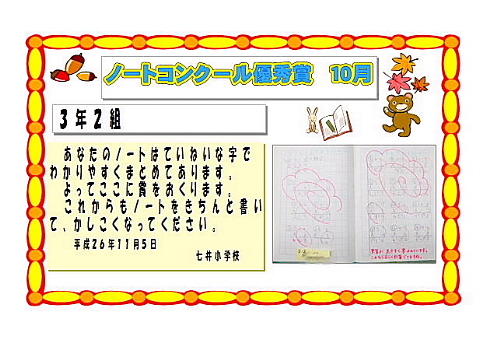 ノートコンクール優秀賞　10月
３年２組
あなたのノートはていねいな字で
わかりやすくまとめてあります。
よってここに賞をおくります。
これからもノートをきちんと書い
て、かしこくなってください。
平成２６年１１月５日
七井小学校